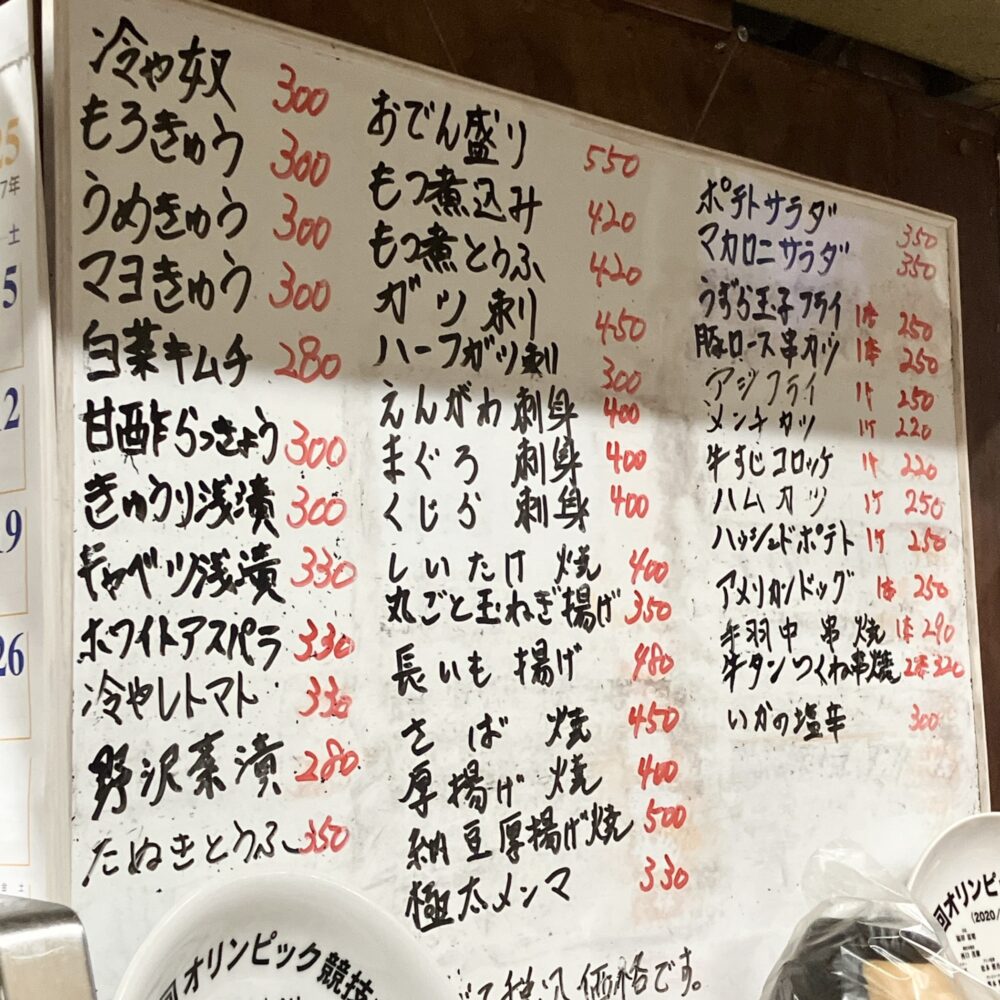 冷や奴 300
もろきゅう 300
うめきゅう 300
マヨきゅう 300
白菜キムチ 280
甘酢らっきょう 300
きゅうり浅漬 300
キャベツ浅漬 330
ホワイトアスパラ 330
冷やしトマト 330
野沢菜漬 280
たぬきとうふ 350
おでん盛り 550
もつ煮込み 420
もつ煮とうふ 420
ガツ刺 450
ハーフガツ刺 300
えんがわ刺身 400
まぐろ刺身 400
くじら刺身 400
しいたけ焼 400
丸ごと玉ねぎ揚げ 350
長いも揚げ 480
さば焼 450
厚揚げ焼 400
納豆厚揚げ焼 500
極太メンマ 330
ポテトサラダ 350
マカロニサラダ 350
うずら玉子フライ 1本 250
豚ロース串カツ 1本 250
アジフライ 1ケ 250
メンチカツ 1ケ 220
牛すじコロッケ 1ケ 220
ハムカツ 1ケ 250
ハッシュドポテト 1ケ 250
アメリカンドッグ 1本 250
手羽中串焼 1本 290
牛タンつくね串焼 2本 320
いかの塩辛 300
て税込価格です。
25
7年
土
5
12
19
26
金 土
回オリンピック競技
回オリンピック
(2020/